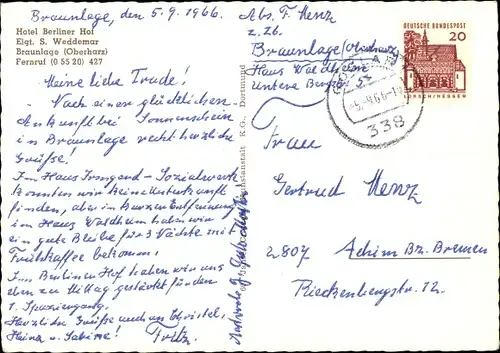 Braunlage, den 5.9.1966.
Hotel Berliner Hof
Elgt. S. Weddemar
Braunlage (Oberharz)
Fernruf (0 55 20) 427
Meine liebe Trude!
Nach einer glücklichen
Ankunft bei Sonnenschein
in Braunlage recht herzliche
Grüße!
Im Haus Irmgard - Sozialwerk
konnten wir keine Unterkunft
finden, aber in kurzer Entfernung
im Haus Waldheim haben wir
eine gute Bleibe für 3 Nächte mit
Frühkaffee bekommen!
Im Berliner Hof haben wir uns
eben zu Mittag gestärkt für den
1. Spaziergang.
Herzliche Grüße auch an Christel,
Heina u. Sabine! Fritz.
K.G., Dortmund
Abs. F. Menz
z. Zt.
Braunlage (Oberharz)
Haus Waldheim
Untere Berg
DEUTSCHE BUNDESPOST
20
LORSCH/HESSEN
-5.-9.66-
338
Frau
Gertrud Menz
2807 Achim Bz. Bremen
Rieckenbergstr. 12